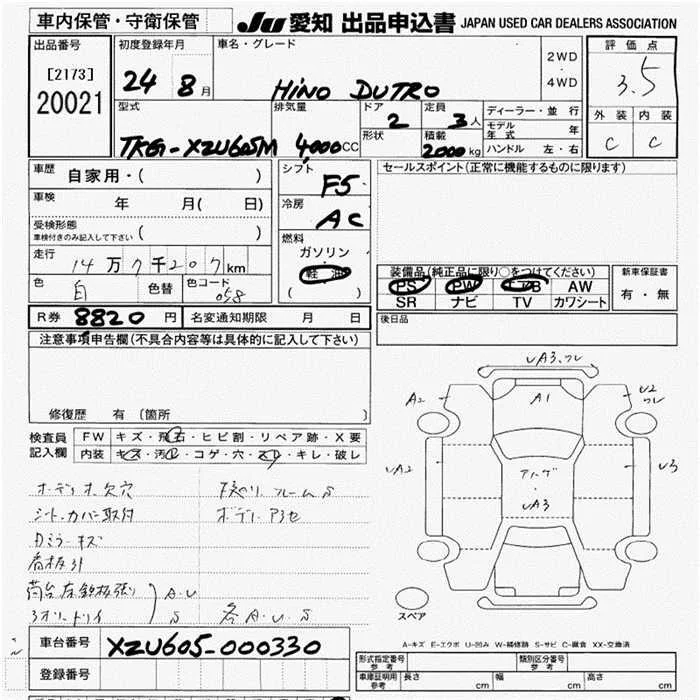 車内保管・守衛保管
JU 愛知 出品申込書 JAPAN USED CAR DEALERS ASSOCIATION
出品番号
[2173]
20021
初度登録年月
24 8 月
車名・グレード
HINO DUTRO
2WD
4WD
評価点
3.5
外装 内装
C C
型式
TKG-XZU605M
排気量
4,000 CC
ドア
2
定員
3 人
形状
積載
2000 kg
ディーラー・並行
モデル年式 年
ハンドル 左・右
車歴
自家用・( )
車検
年 月( 日)
受検形態
車検付きのみ記入して下さい ( )
走行
14万7千207 km
色
白
色替
色コード
058
シフト
F5
冷房
AC
燃料
ガソリン
軽油
( )
セールスポイント(正常に機能するものに限ります)
装備品(純正品に限り○をつけてください)
PS PW エアB AW
SR ナビ TV カワシート
新車保証書
有・無
後日品
R券 8820 円
名変通知期限 月 日
注意事項申告欄(不具合内容等は具体的に記入して下さい)
修復歴 有 (箇所 )
検査員
記入欄
FW キズ・飛石・ヒビ割・リペア跡・X要
内装 キズ・汚れ・コゲ・穴・スレ・キレ・破レ
オーディオ欠穴
シートカバー取付
Dミラーキズ
看板引
荷台左鉄板張り
A.U
S
下廻り フレームS
ボデーアラセ
各A.U.S
UA3.ワレ
A2
A1
U2
ワレ
UA2
U3
UA3
スペア
A-キズ E-エクボ U-凹み W-補修跡 S-サビ C-腐食 XX-交換済
車台番号
XZU605-000330
登録番号
形式指定番号
参考
類別区分番号
参考
車庫証明用
参考
長さ cm
幅 cm
高さ cm